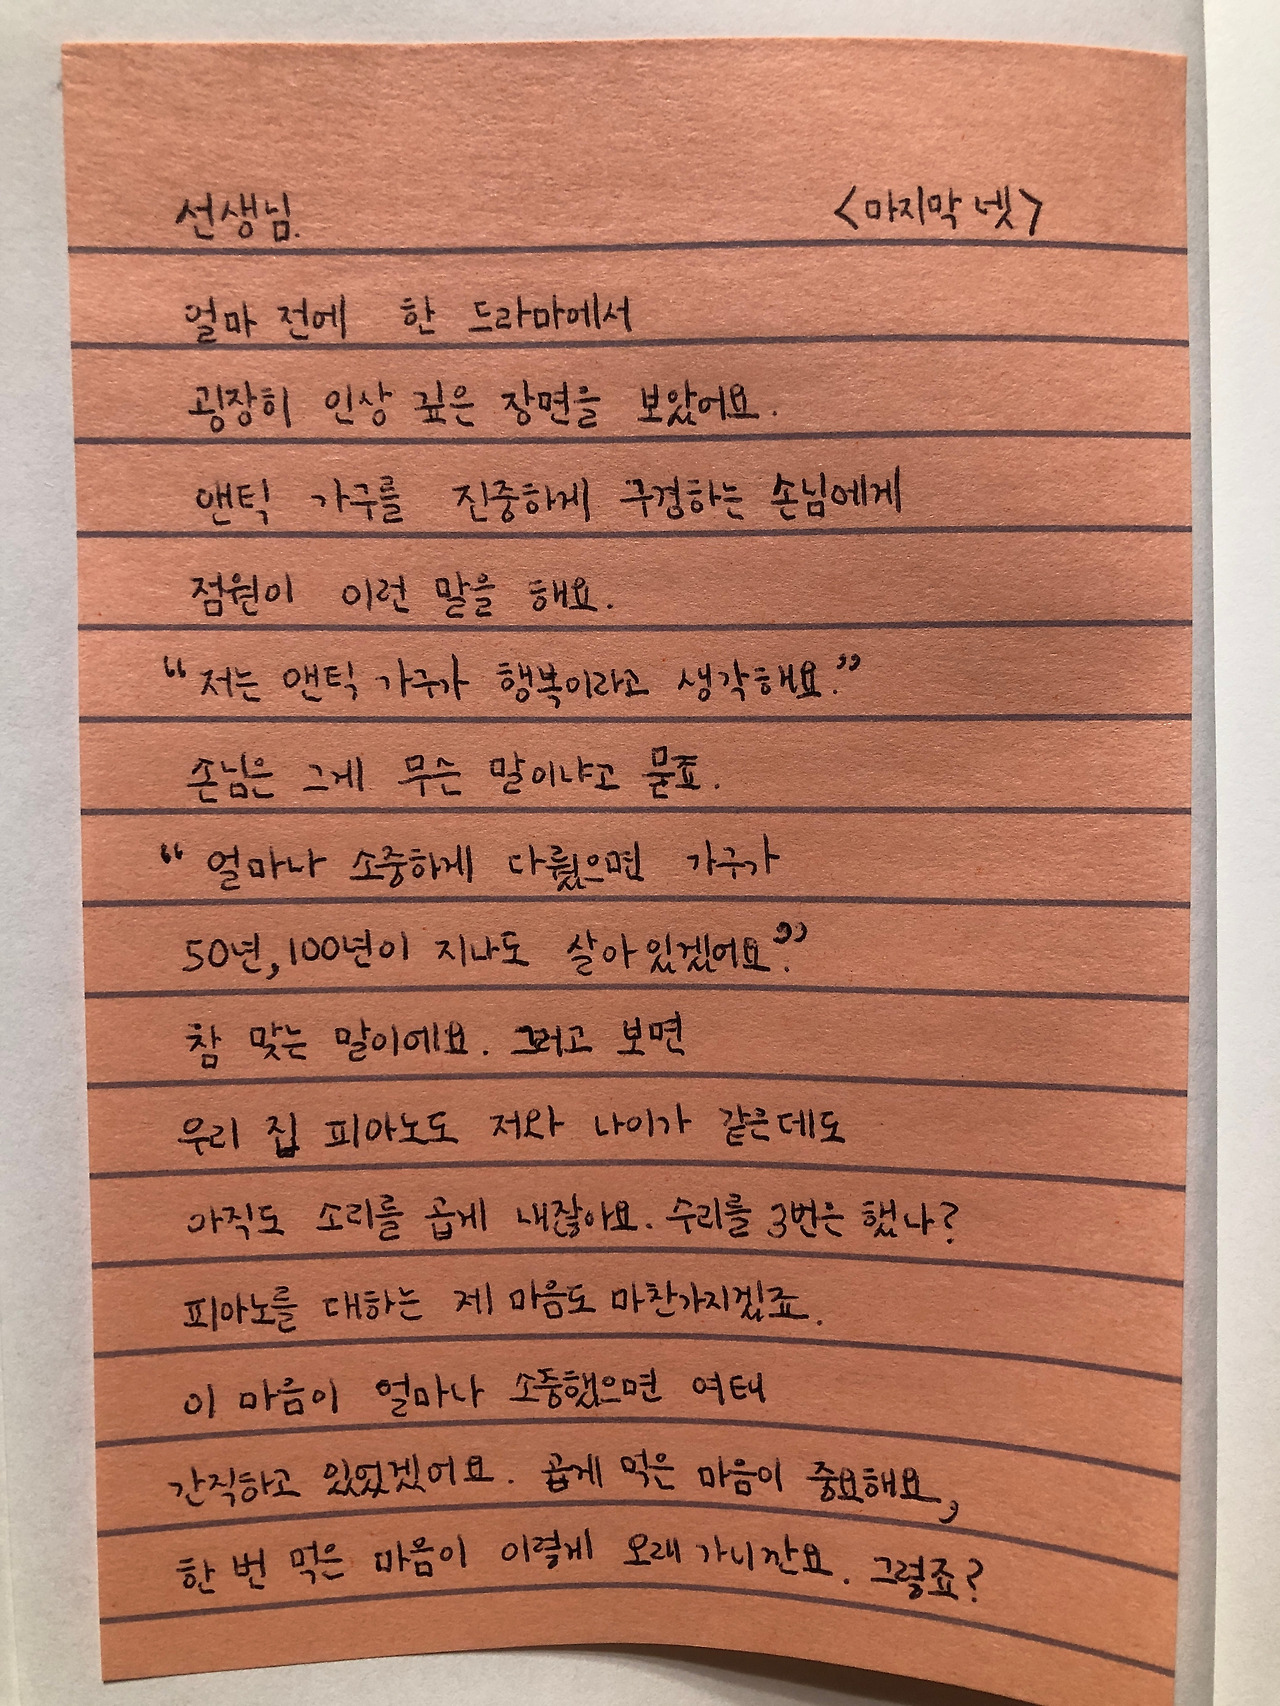 선생님. <마지막 넷>
얼마 전에 한 드라마에서
굉장히 인상 깊은 장면을 보았어요.
앤틱 가구를 진중하게 구경하는 손님에게
점원이 이런 말을 해요.
“저는 앤틱 가구가 행복이라고 생각해요.”
손님은 그게 무슨 말이냐고 묻죠.
“얼마나 소중하게 다뤘으면 가구가
50년, 100년이 지나도 살아있겠어요?”
참 맞는 말이에요. 그러고 보면
우리 집 피아노도 저와 나이가 같은데도
아직도 소리를 곱게 내잖아요. 수리를 3번은 했나?
피아노를 대하는 제 마음도 마찬가지겠죠.
이 마음이 얼마나 소중했으면 여태
간직하고 있었겠어요. 곱게 먹은 마음이 중요해요,
한 번 먹은 마음이 이렇게 오래 가니깐요. 그렇죠?